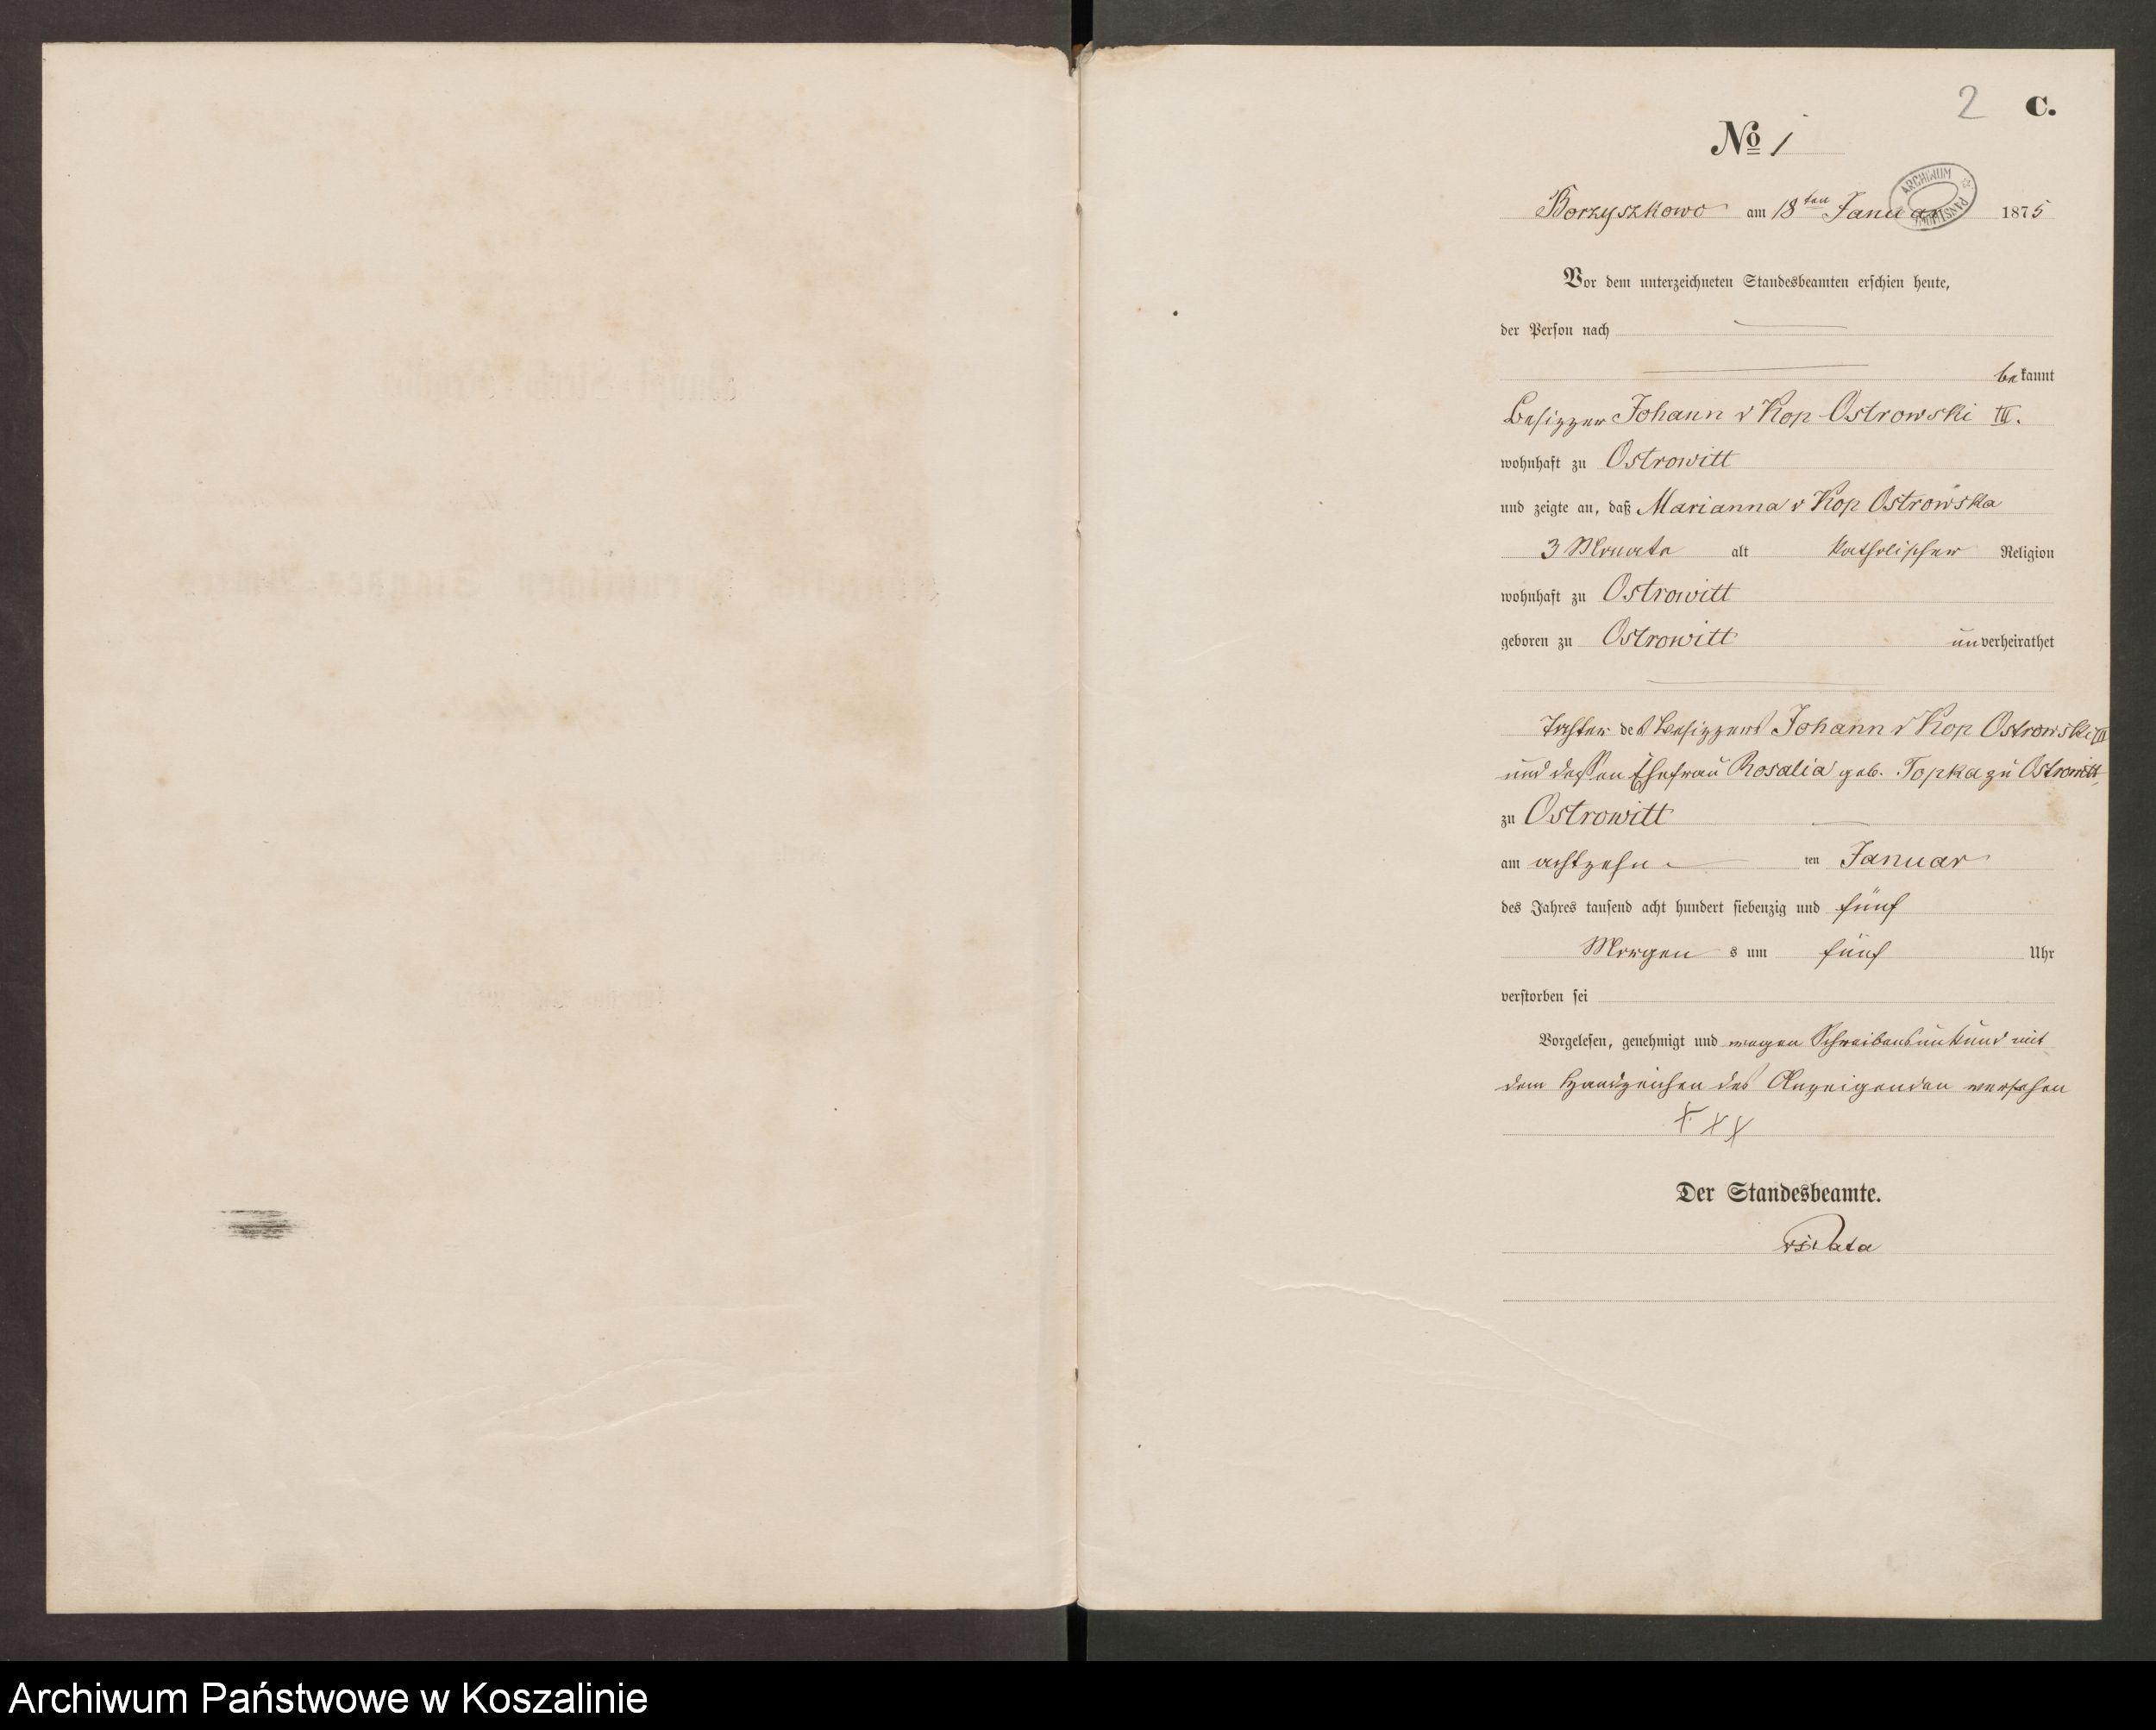 2 C.
No 1
ARCHIWUM PAŃSTWOWE
Borzyszkowo am 18ten Januar 1875
Vor dem unterzeichneten Standesbeamten erschien heute,
der Person nach
bekannt
Besitzer Johann v Kop Ostrowski III.
wohnhaft zu Ostrowitt
und zeigte an, daß Marianna v Kop Ostrowska
3 Monate alt katholischer Religion
wohnhaft zu Ostrowitt
geboren zu Ostrowitt unverheirathet
Tochter des Besitzers Johann v Kop Ostrowski III
und dessen Ehefrau Rosalia geb. Topka zu Ostrowitt
zu Ostrowitt
am achtzehn ten Januar
des Jahres tausend acht hundert siebenzig und fünf
Morgens um fünf Uhr
verstorben sei
Vorgelesen, genehmigt und wegen Schreibensunkund mit
dem Handzeichen des Anzeigenden versehen
XXX
Der Standesbeamte.
Archiwum Państwowe w Koszalinie